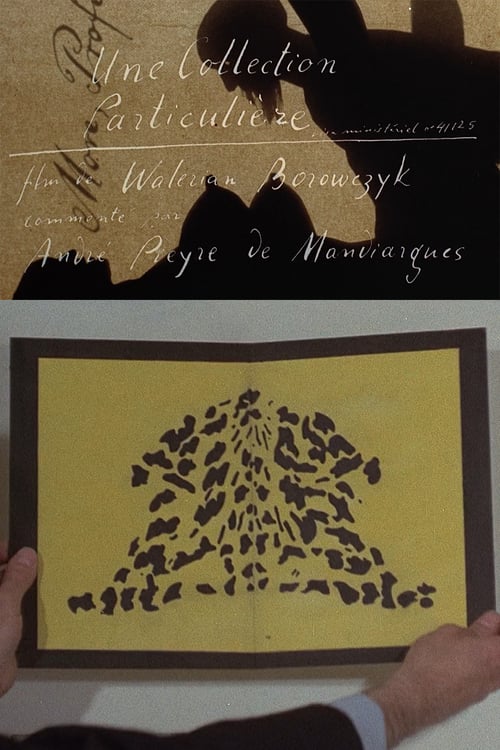 Une Collection
Particulière visa ministériel nº 41125
film de Walerian Borowczyk
commenté par
André Pieyre de Mandiargues